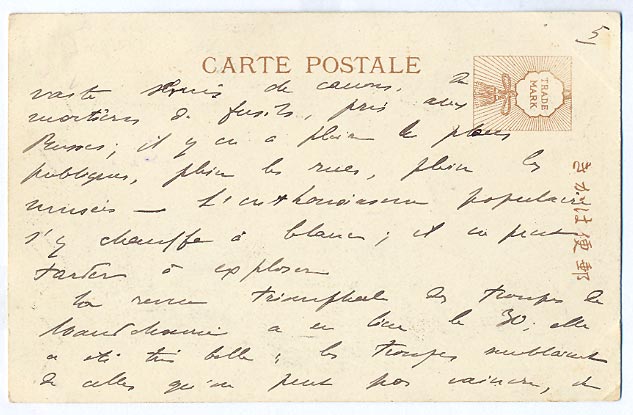 5
CARTE POSTALE
TRADE
MARK
きかは便郵
vaste de canons, de
mortiers de fusils, pris aux
Russes; il y en a plein les places
publiques, plein les rues, plein les
musées — L'enthousiasme populaire
s'y chauffe à blanc; il ne peut
tarder à exploser
La revue triomphale des troupes de
Mandchourie a eu lieu le 30; elle
a été très belle; les troupes semblaient
de celles qu'on ne peut pas vaincre, et